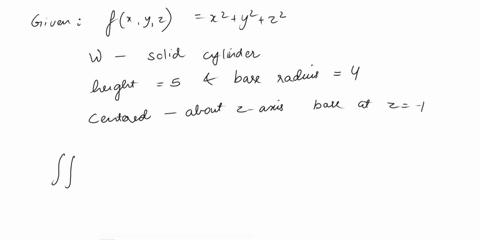 Given: f(x,y,z) = x²+y²+z²
W – solid cylinder
height = 5 & base radius = 4
Centered – about z-axis base at z=-1
∬